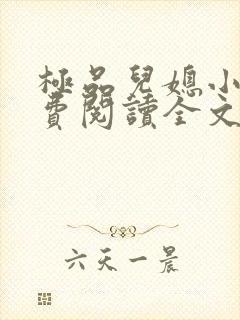 極品兒媳小
費閱讀全文
六天一晨